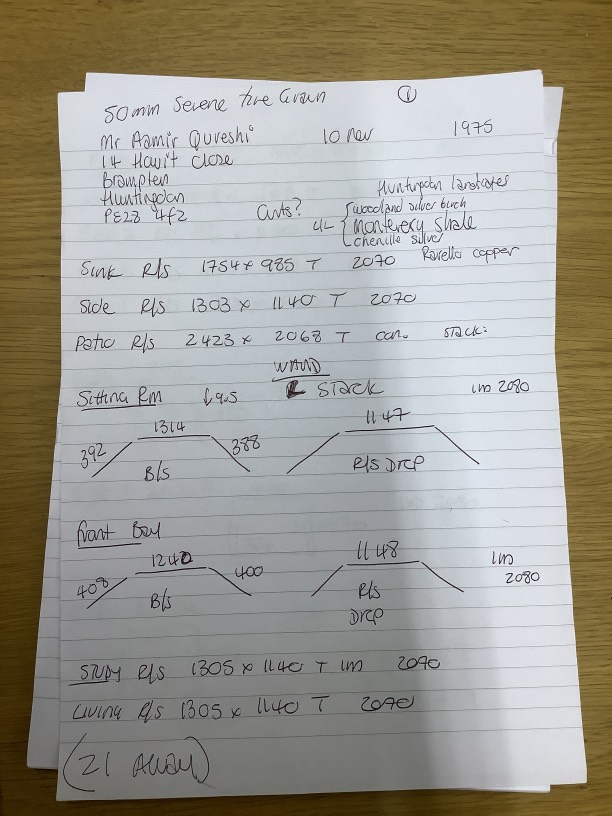 50mm Serene fine Grain ①
Mr Aamir Qureshi 10 Nov 1975
14 Havit Close
Brampten
Huntingdon Huntingdon landscapes
PE28 4f2 Cints? woodland silver birch
monterery Shale
chenille silver
Sink R/s 1754 x 985 T 2070 Ravello copper
Side R/s 1303 x 1140 T 2070
Patio R/s 2423 x 2068 T can. stack:
WAND
Sitting Rm STACK 1m 2080
392 1314 388 1147
B/s R/s Drop
front Bay
408 1240 400 1148 1m
2080
B/s R/s
Drop
STUDY R/s 1305 x 1140 T 1m 2090
Living R/s 1305 x 1140 T 2090
(21 Away)